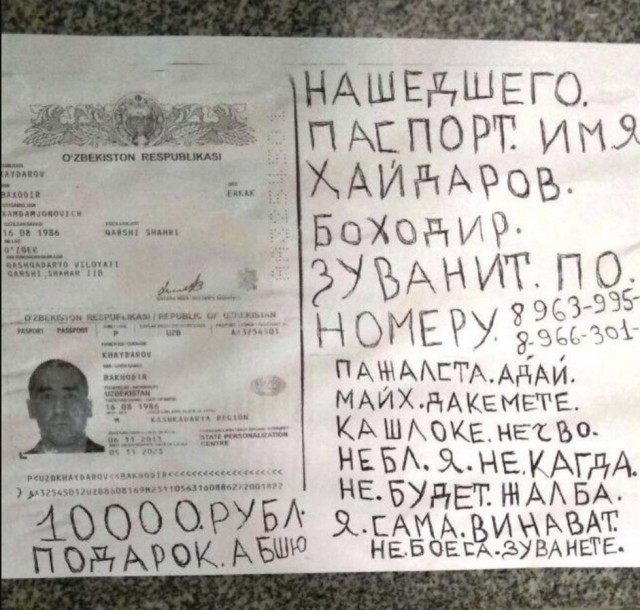 O'ZBEKISTON RESPUBLIKASI
ERKAK
16 08 1986 QARSHI SHAHRI
O'ZBEK
QASHQADARYO VILOYATI
QARSHI SHAHAR IIB
O'ZBEKISTON RESPUBLIKASI / REPUBLIC OF UZBEKISTAN
PASPORT PASSPORT P UZB
KHAYDAROV
BAKHODIR
UZBEKISTAN
16 08 1986
M KASHKADARYA REGION
06 11 2013 STATE PERSONALIZATION
05 11 2023 CENTRE
10000.РУБЛ.
ПОДАРОК.АБШЮ
НАШЕДШЕГО.
ПАСПОРТ. ИМЯ
ҲАЙДАРОВ.
БОХОДИР.
ЗУВАНИТ. ПО.
НОМЕРУ. 8 963-995
8-966-301-
ПАЖАЛСТА.АДАЙ.
МАЙХ.ДАКЕМЕТЕ.
КАШЛОКЕ.НЕЧВО.
НЕБЛ.Я.НЕ.КАГДА.
НЕ.БУДЕТ.ЖАЛБА.
Я.САМА.ВИНАВАТ.
НЕ.БОЕСА.ЗУВАНЕТЕ.